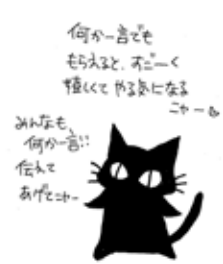 何か一言でも
もらえると、すご〜く
嬉しくて やる気になる
ニャー
みんなも、
何か一言!!
伝えて
あげてニャー